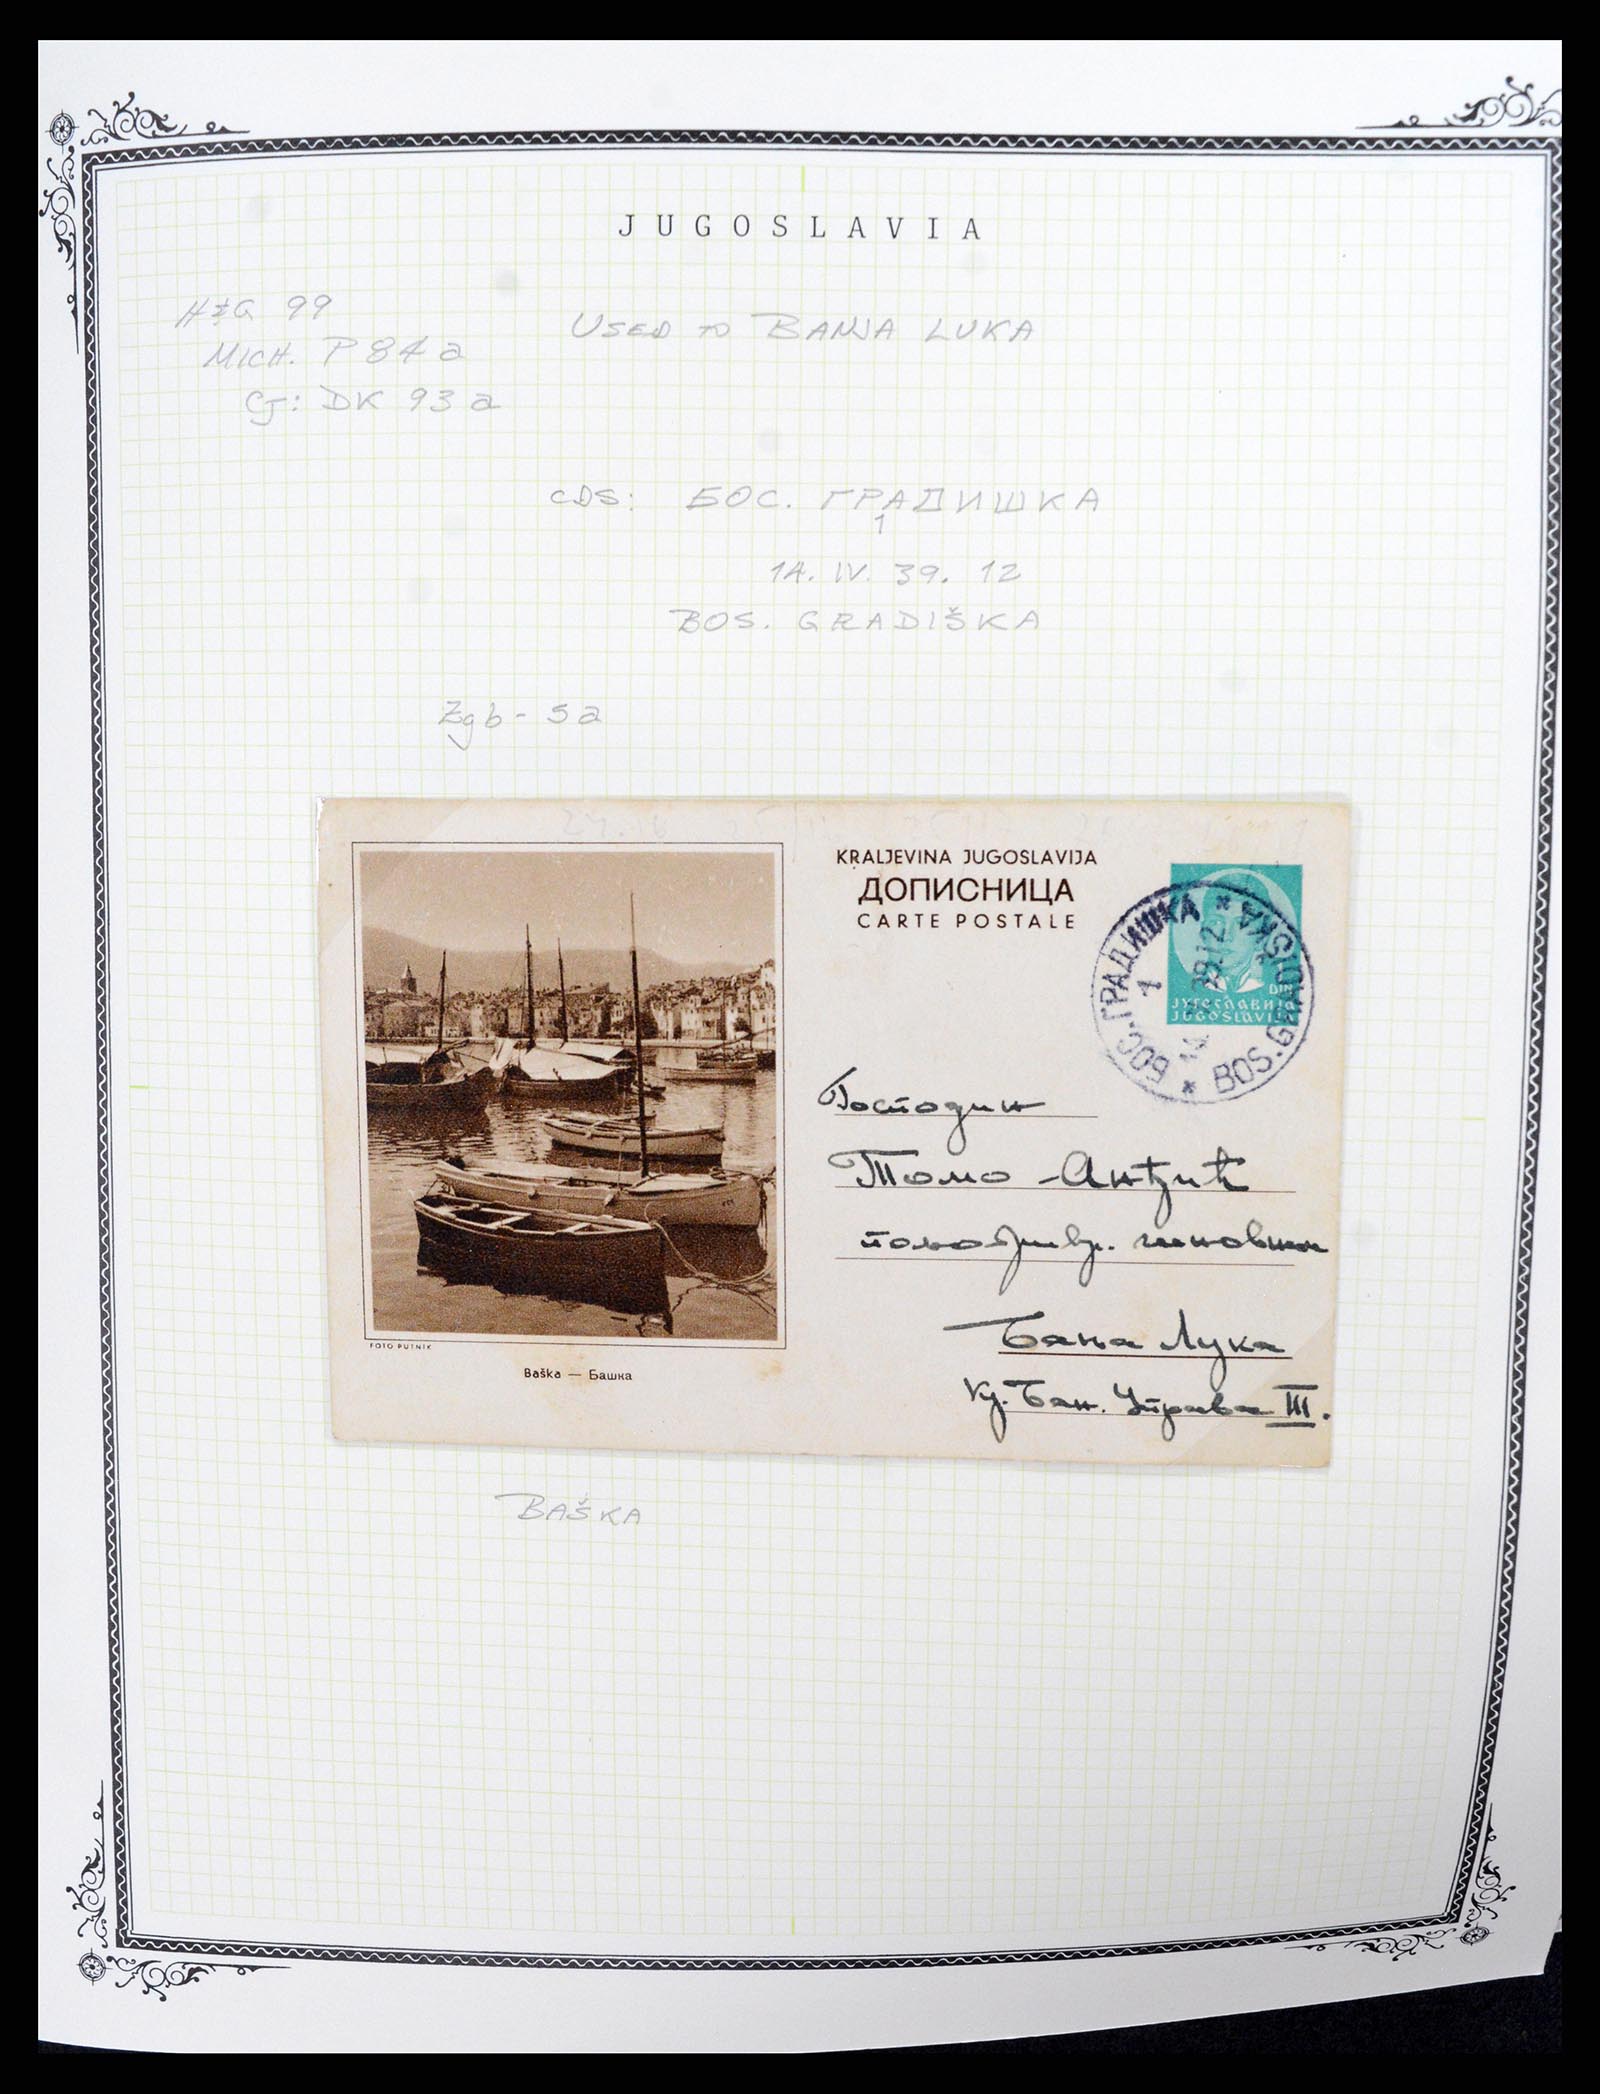 JUGOSLAVIA
H&G 99
MICH. P 84 a
CJ: DK 93 a
USED TO BANJA LUKA
CDS: БОС. ГРАДИШКА
1
14. IV. 39. 12
BOS. GRADIŠKA
Zgb - 5a
KRALJEVINA JUGOSLAVIJA
ДОПИСНИЦА
CARTE POSTALE
DIN
ЈУГОСЛАВИЈА
JUGOSLAVIJA
БОС. ГРАДИШКА
1
39.12
BOS. GRADIŠKA
Господин
Томо Анђић
чиновник
Бања Лука
Кр. Бан. Управа III.
FOTO PUTNIK
Baška — Башка
BAŠKA